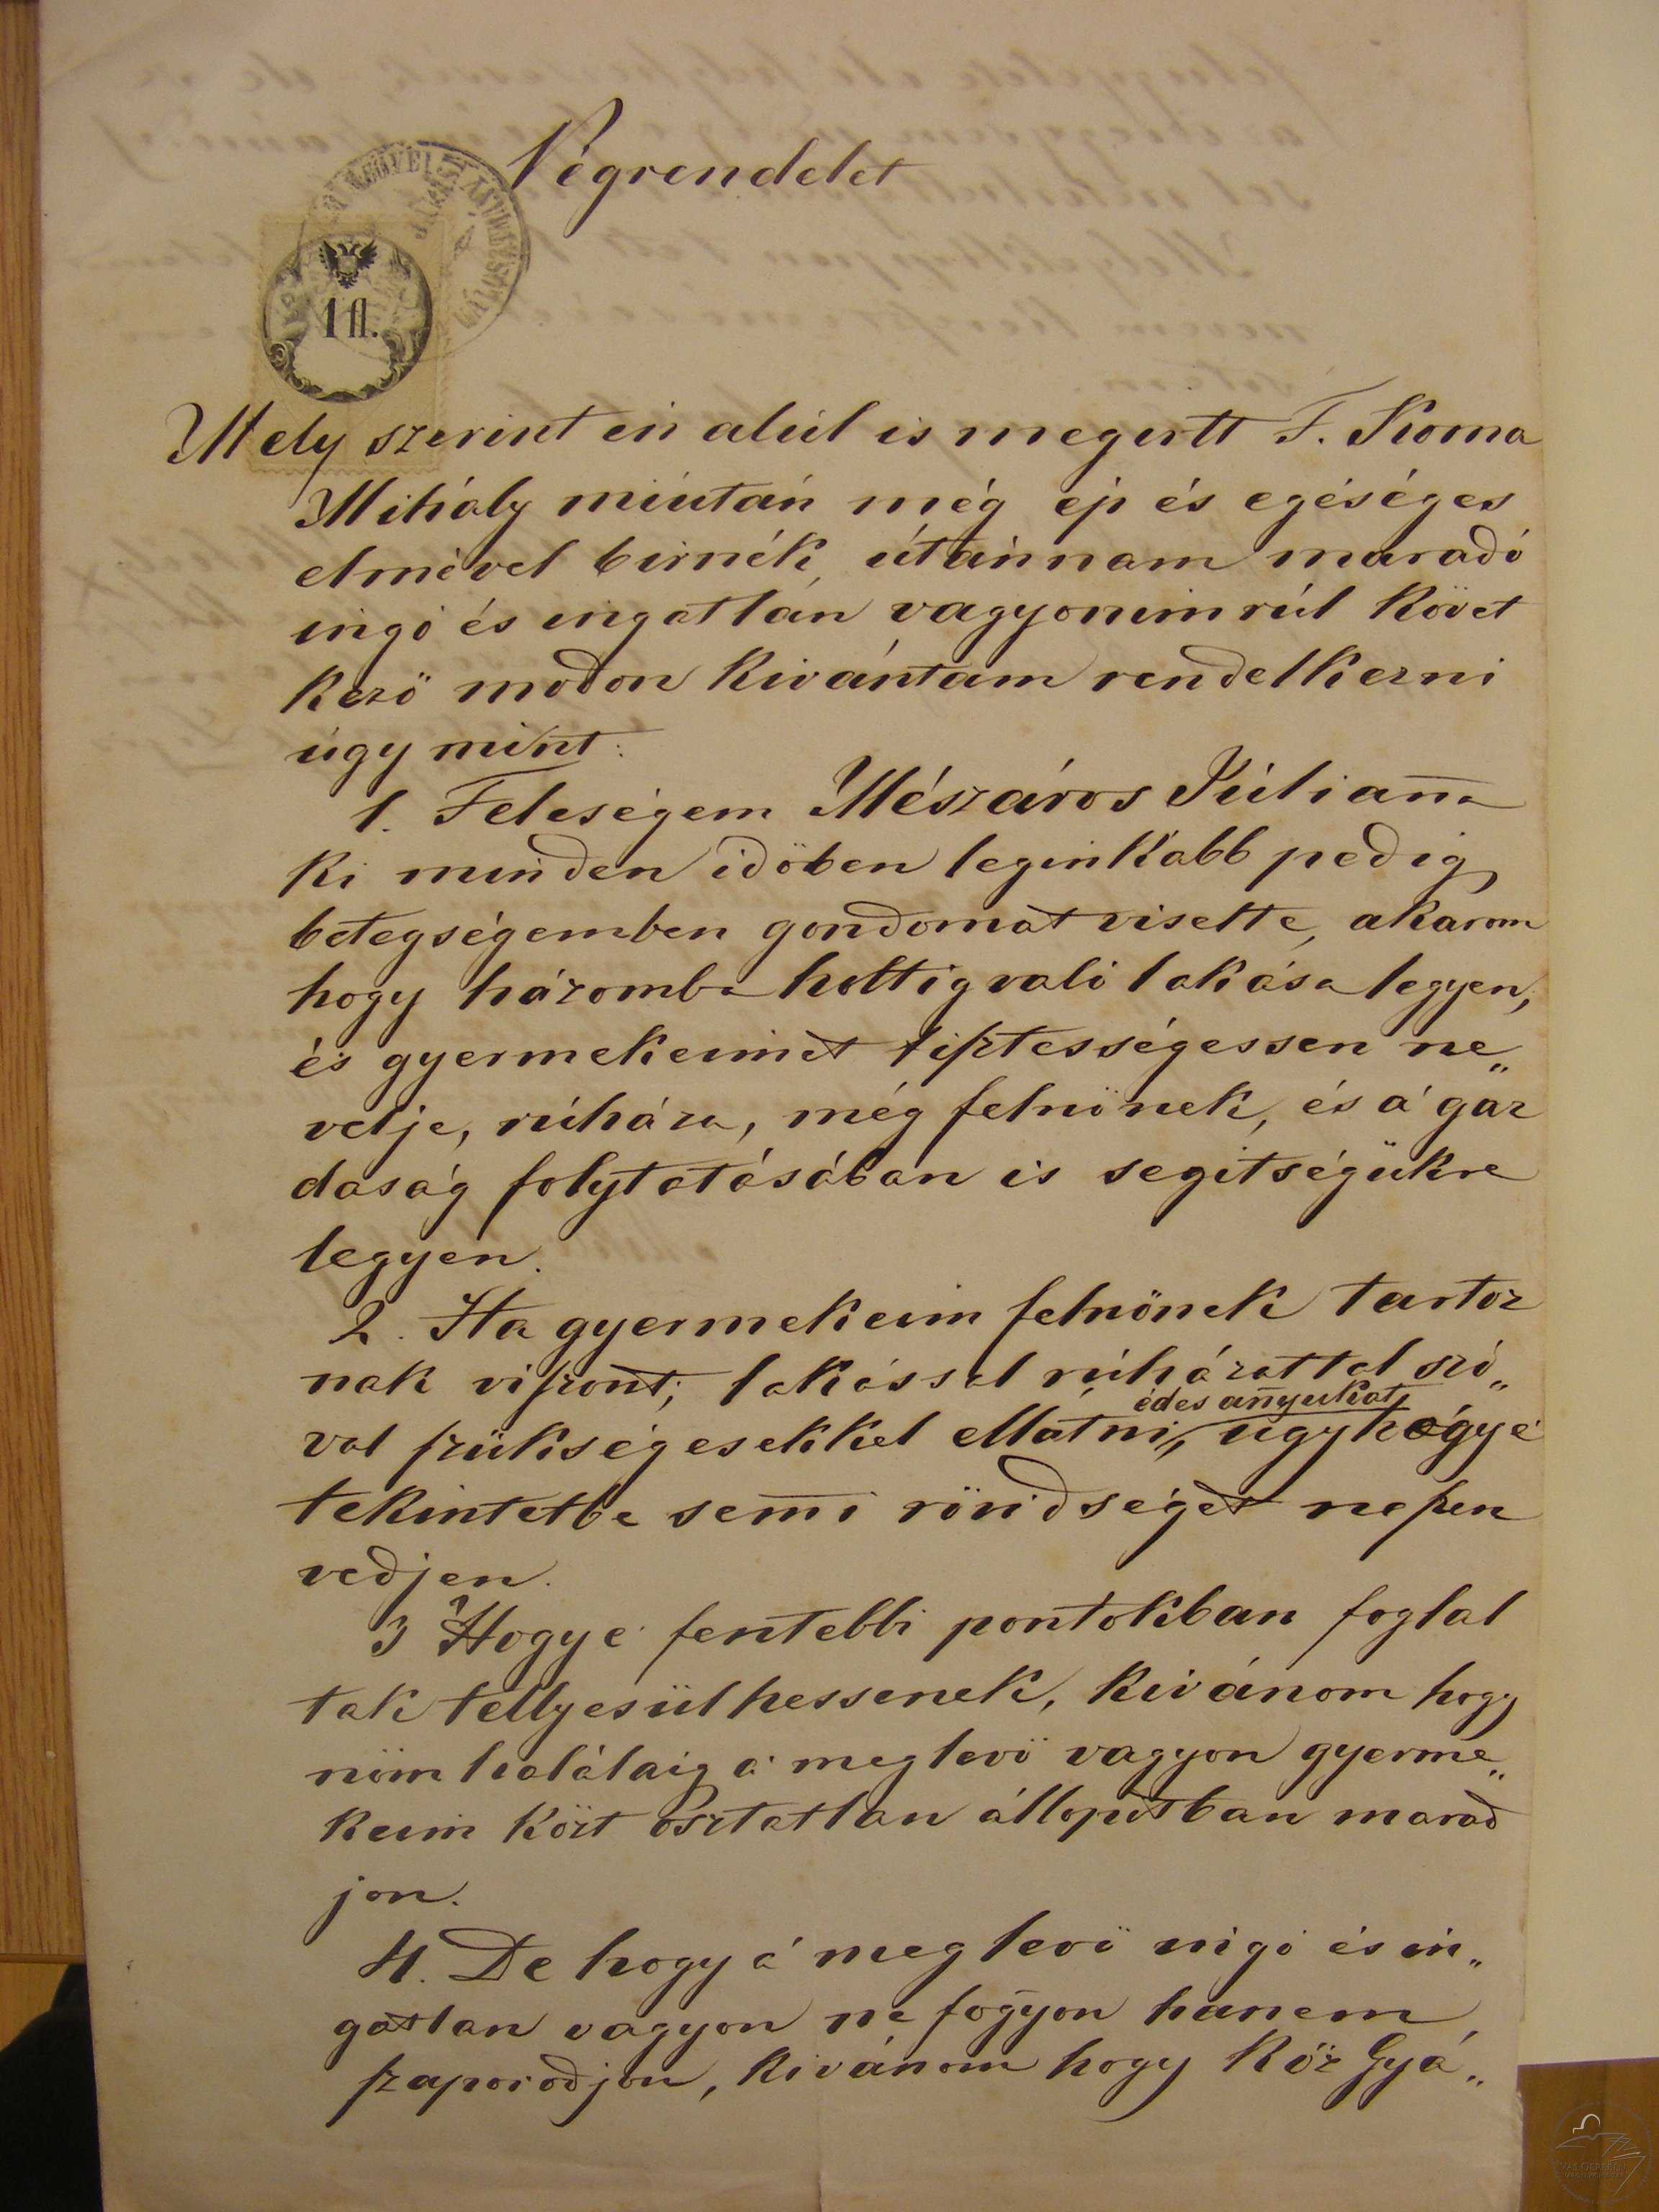 Végrendelet
1 fl.
Mely szerint én alúl is megirtt F. Koma
Mihály miután még ép és egéséges
elmével birnék, útánnam maradó
ingó és ingatlan vagyonimrúl követ
kező modon kivántam rendelkezni
úgy mint:
1. Feleségem Mészáros Júlian̄a
ki minden időben leginkább pedig
betegségemben gondomat viselte, akarom
hogy házomba holtig való lakása legyen,
és gyermekeimet tisztességessen ne„
velje, rúházza, még felnőnek, és á gaz
daság folytatásában is segitségükre
legyen.
2. Ha gyermekeim felnőnek tartoz
nak viszont, lakással rúházattal szó„
édes an̄yukat
val szükségesekkel ellátni, úgy hogy e
tekintetbe sem̄i rövidséget ne szen
vedjen.
3 Hogy e fentebbi pontokban foglal
tak tellyesülhessenek, kivánom hogy
nőm haláláig á meglevő vagyon gyerme„
keim közt osztatlan állapotban marad
jon.
4. De hogy á meglevő ingó és in„
gatlan vagyon ne fogyon hanem
szaporodjon, kivánom hogy köz Gyá„